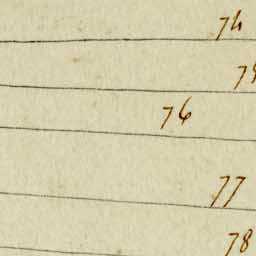 74
75
76
77
78